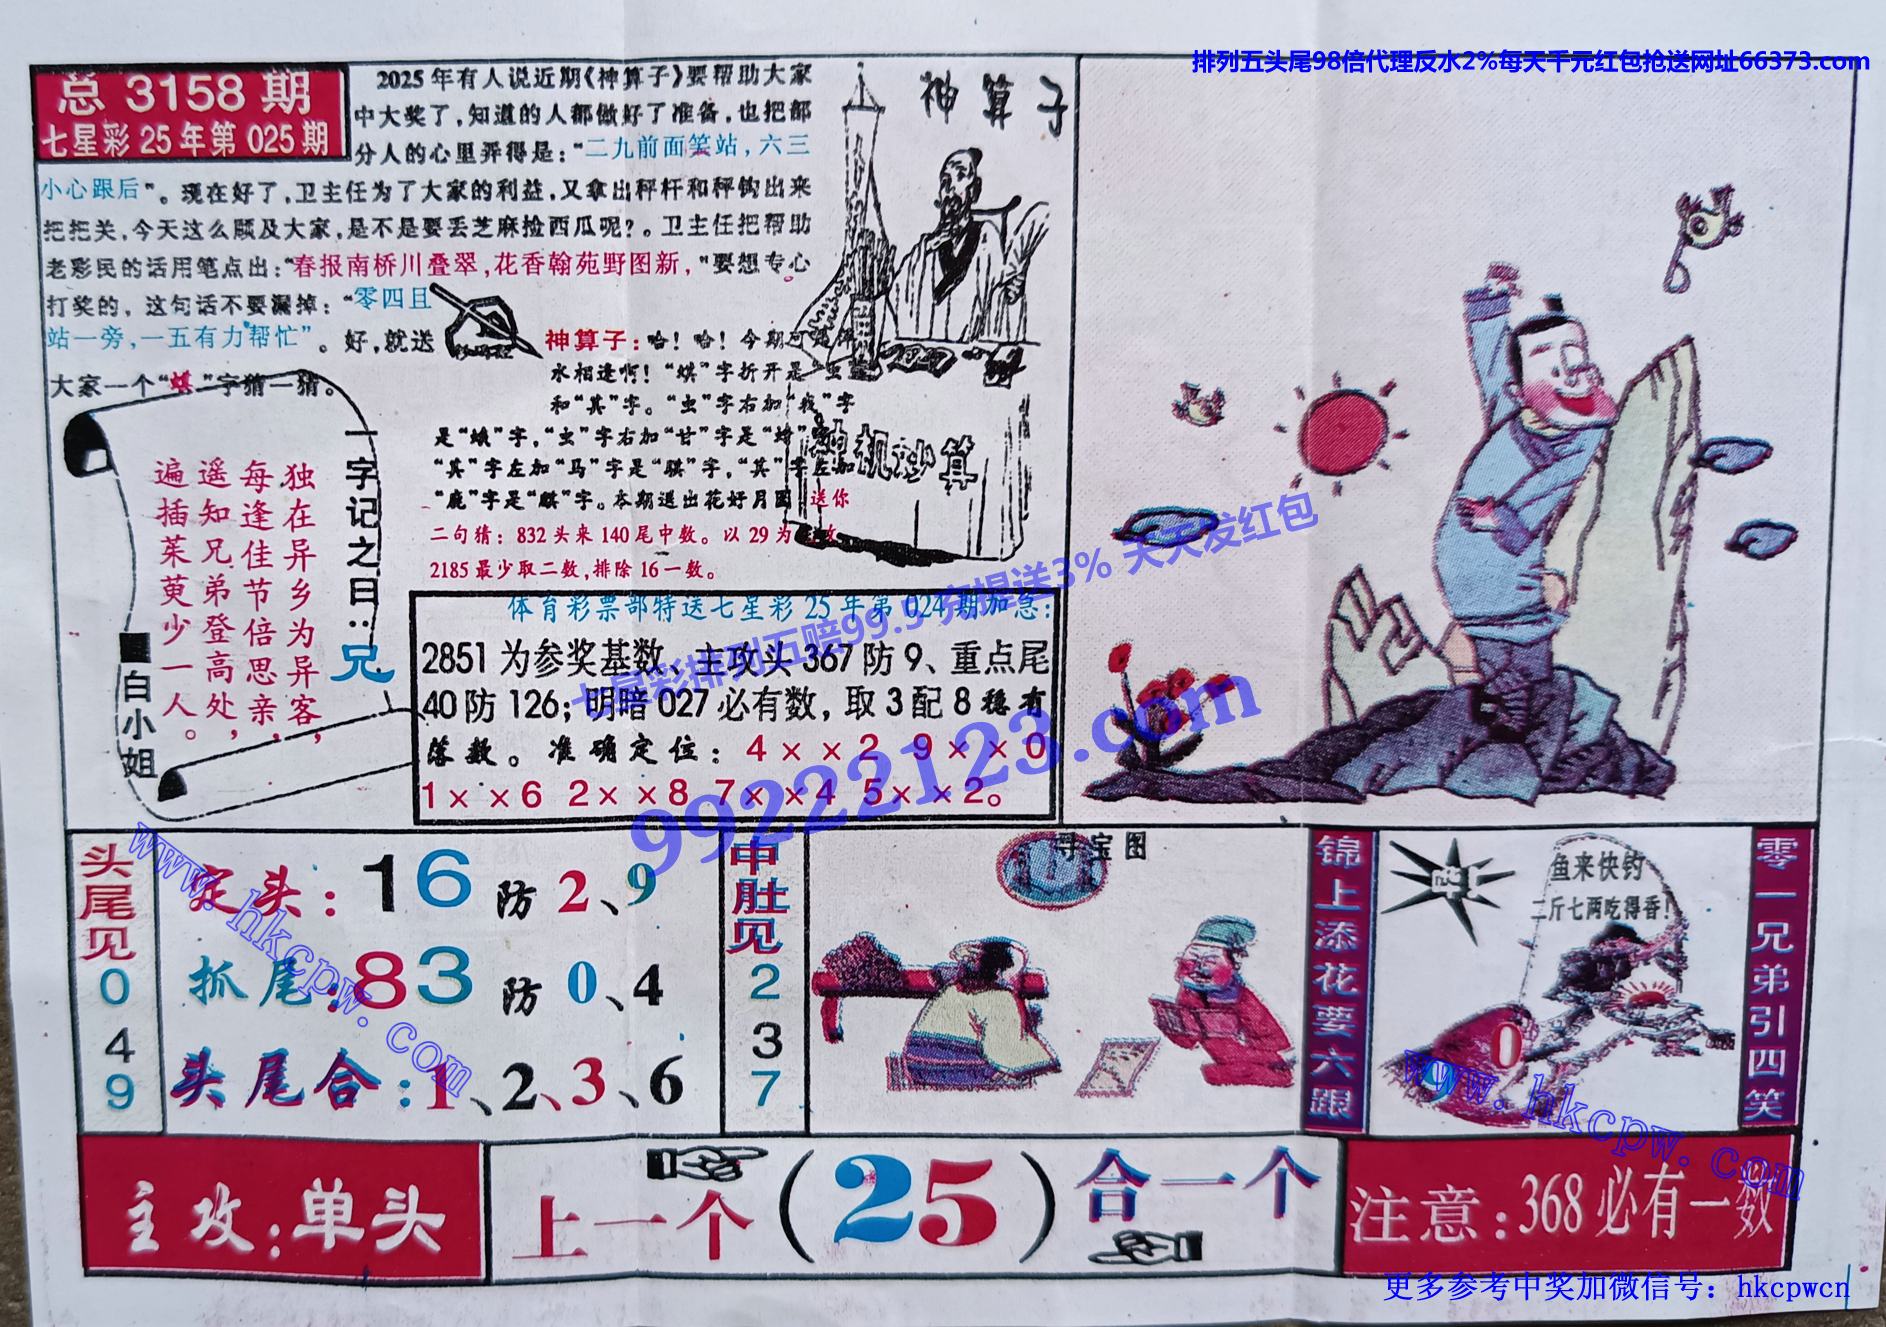 排列五头尾98倍代理反水2%每天千元红包抢送网址66373.com
总 3158 期
七星彩 25 年第 025 期
2025 年有人说近期《神算子》要帮助大家
中大奖了,知道的人都做好了准备,也把部
分人的心里弄得是:“二九前面笑站,六三
小心跟后”。现在好了,卫主任为了大家的利益,又拿出秤杆和秤钩出来
把把关,今天这么顾及大家,是不是要丢芝麻捡西瓜呢?。卫主任把帮助
老彩民的话用笔点出:“春报南桥川叠翠,花香翰苑野图新,“要想专心
打奖的,这句话不要漏掉:“零四且
站一旁,一五有力帮忙”。好,就送
大家一个“蜞”字猜一猜。
神算子
神算子:哈!哈!今期可
水相逢啊!“蜞”字折开是“虫
和“其”字。“虫”字右加“我”字
是“蛾”字,“虫”字右加“甘”字是“蚶”
“其”字左加“马”字是“骐”字,“其”字左加
“鹿”字是“麒”字。本期送出花好月圆 送你
二句猜:832 头来 140 尾中数。以 29 为
2185 最少取二数,排除 16 一数。
机妙算
一字记之曰:兄
独在异乡为异客,
每逢佳节倍思亲,
遥知兄弟登高处,
遍插茱萸少一人。
白小姐
体育彩票部特送七星彩 25 年第 024 期加急:
2851 为参奖基数、主攻头 367 防 9、重点尾
40 防 126; 明暗 027 必有数, 取 3 配 8 稳有
落数。准确定位: 4××2 9××0
1××6 2××8 7××4 5××2。
七星彩排列五赔99.5 充提送3% 天天发红包
99222123.com
头尾见
0
4
9
定头: 16 防 2、9
抓尾: 83 防 0、4
头尾合: 1、2、3、6
www.hkcpw.com
中肚见
2
3
7
寻宝图
锦上添花要六跟
鱼来快钓
二斤七两吃得香!
0
9
零一兄弟引四笑
www.hkcpw.com
主攻:单头
上一个 (25) 合一个
注意:368 必有一数
更多参考中奖加微信号:hkcpwcn